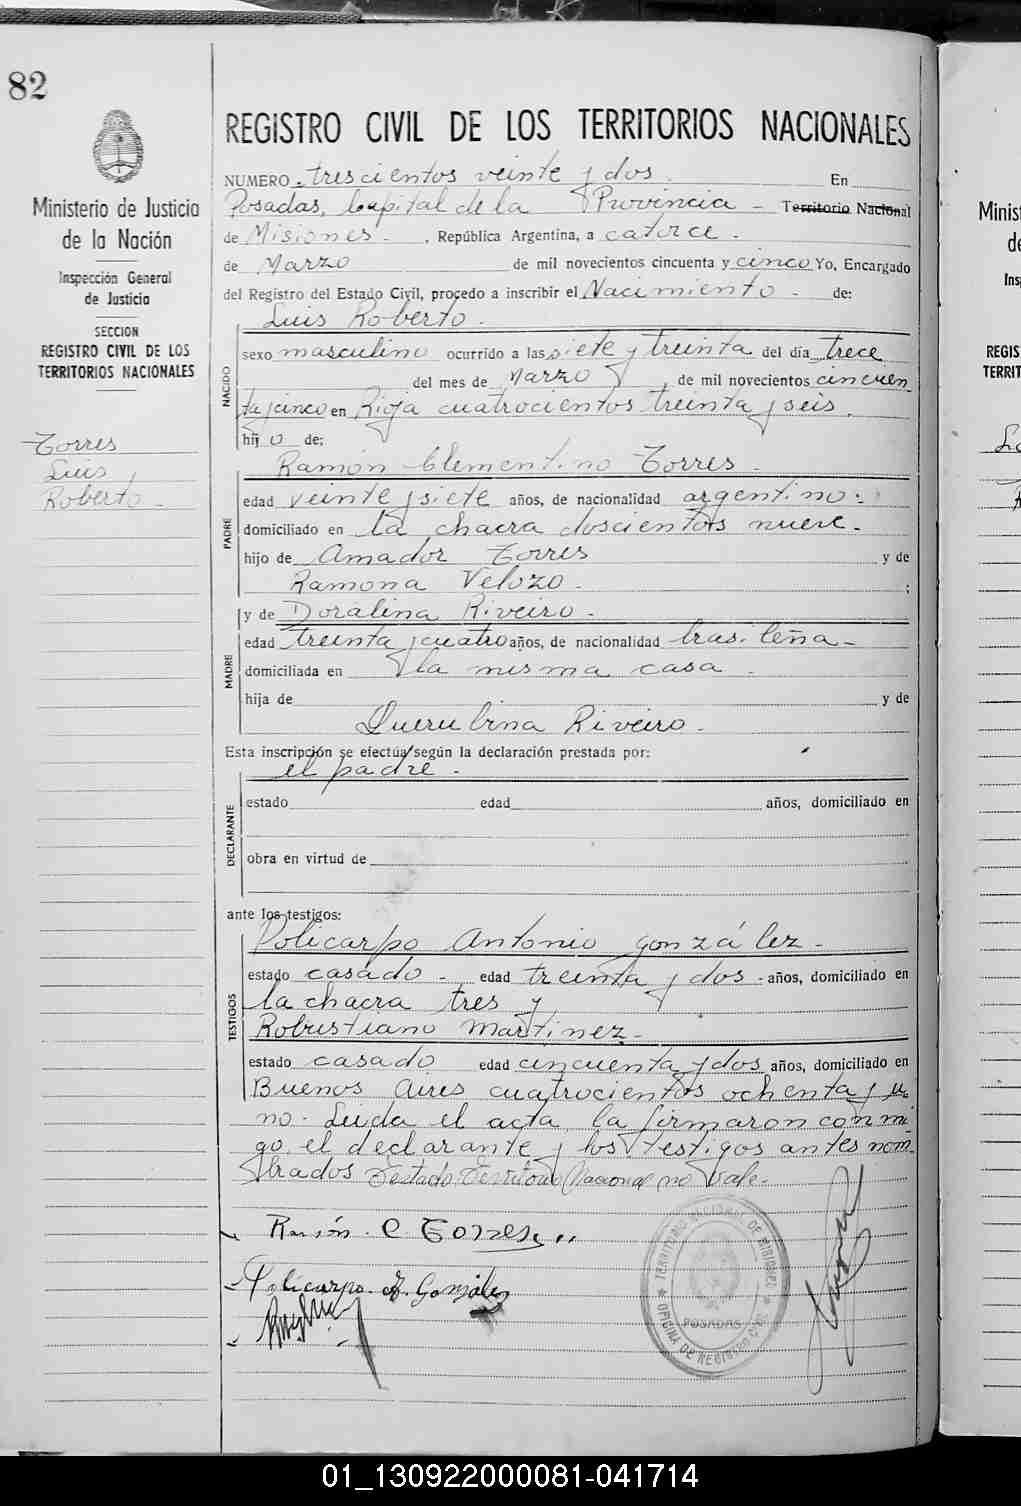 82
REGISTRO CIVIL DE LOS TERRITORIOS NACIONALES
Ministerio de Justicia
de la Nación
Inspección General
de Justicia
SECCION
REGISTRO CIVIL DE LOS
TERRITORIOS NACIONALES
Torres
Luis
Roberto -
NUMERO trescientos veinte y dos. En
Posadas, Capital de la Provincia - Territorio Nacional
de Misiones - , República Argentina, a catorce -
de Marzo de mil novecientos cincuenta y cinco Yo, Encargado
del Registro del Estado Civil, procedo a inscribir el Nacimiento - de:
Luis Roberto -
NACIDO
sexo masculino ocurrido a las siete y treinta del día trece
del mes de Marzo, de mil novecientos cincuen
ta y cinco en Rioja cuatrocientos treinta y seis.
hij o de:
Ramón Clementino Torres -
PADRE
edad veinte y siete años, de nacionalidad argentino -
domiciliado en la chacra doscientos nueve -
hijo de Amador Torres y de
Ramona Velozo - ;
y de Doralina Riveiro -
MADRE
edad treinta y cuatro años, de nacionalidad brasileña -
domiciliada en la misma casa -
hija de y de
Querubina Riveiro -
Esta inscripción se efectúa según la declaración prestada por:
el padre -
DECLARANTE
estado edad años, domiciliado en
obra en virtud de
ante los testigos:
Policarpo Antonio González -
TESTIGOS
estado casado - edad treinta y dos - años, domiciliado en
la chacra tres y
Robustiano Martinez -
estado casado edad cincuenta y dos años, domiciliado en
Buenos Aires cuatrocientos ochenta y u
no - Leida el acta, la firmaron conmi
go, el declarante y los testigos antes nom-
brados Testado: Territorio Nacional no vale -
Ramón C Torres
Policarpo A. González
TERRITORIO NACIONAL DE MISIONES
POSADAS
OFICINA DE REGISTRO CIVIL
Minis
de
Ins
REGIS
TERRIT
01_130922000081-041714